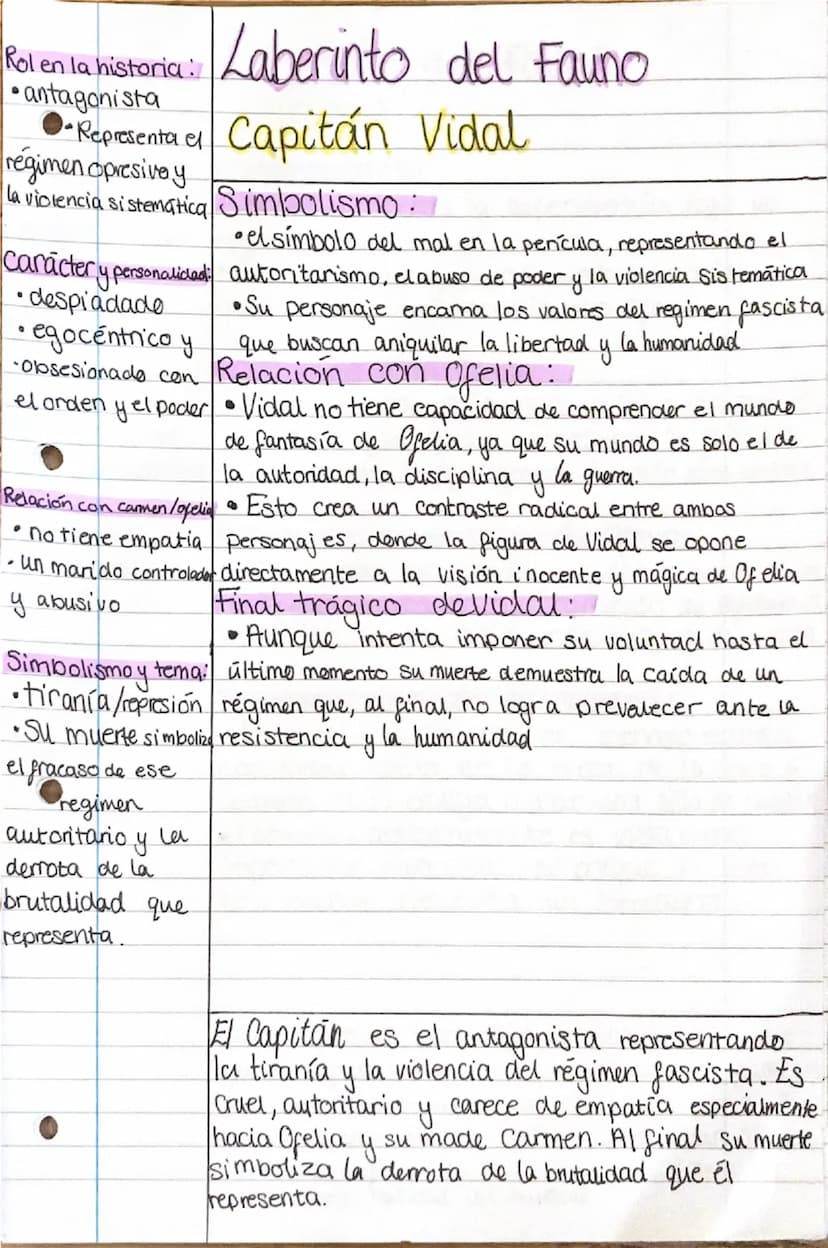 Laberinto del Fauno
Capitán Vidal
Rol en la historia:
• antagonista
• Representa el
régimen opresivo y
la violencia sistemática
Carácter y personalidad:
• despiadado
• egocéntrico y
• obsesionado con
el orden y el poder
Relación con carmen/ofelia
• no tiene empatía
• un marido controlador
y abusivo
Simbolismo y tema:
• tiranía/represión
• Su muerte simboliza
el fracaso de ese
regimen
autoritario y la
derrota de la
brutalidad que
representa.
Simbolismo:
• el símbolo del mal en la perícula, representando el
autoritarismo, el abuso de poder y la violencia sistemática
• Su personaje encama los valores del regimen fascista
que buscan aniquilar la libertad y la humanidad
Relación con Ofelia:
• Vidal no tiene capacidad de comprender el mundo
de fantasía de Ofelia, ya que su mundo es solo el de
la autoridad, la disciplina y la guerra.
• Esto crea un contraste radical entre ambos
personajes, donde la figura de Vidal se opone
directamente a la visión inocente y mágica de Ofelia
Final trágico de Vidal:
• Aunque intenta imponer su voluntad hasta el
último momento su muerte demuestra la caída de un
régimen que, al final, no logra prevalecer ante la
resistencia y la humanidad
El Capitán es el antagonista representando
la tiranía y la violencia del régimen fascista. Es
cruel, autoritario y carece de empatía especialmente
hacia Ofelia y su made Carmen. Al final su muerte
simboliza la derrota de la brutalidad que él
representa.